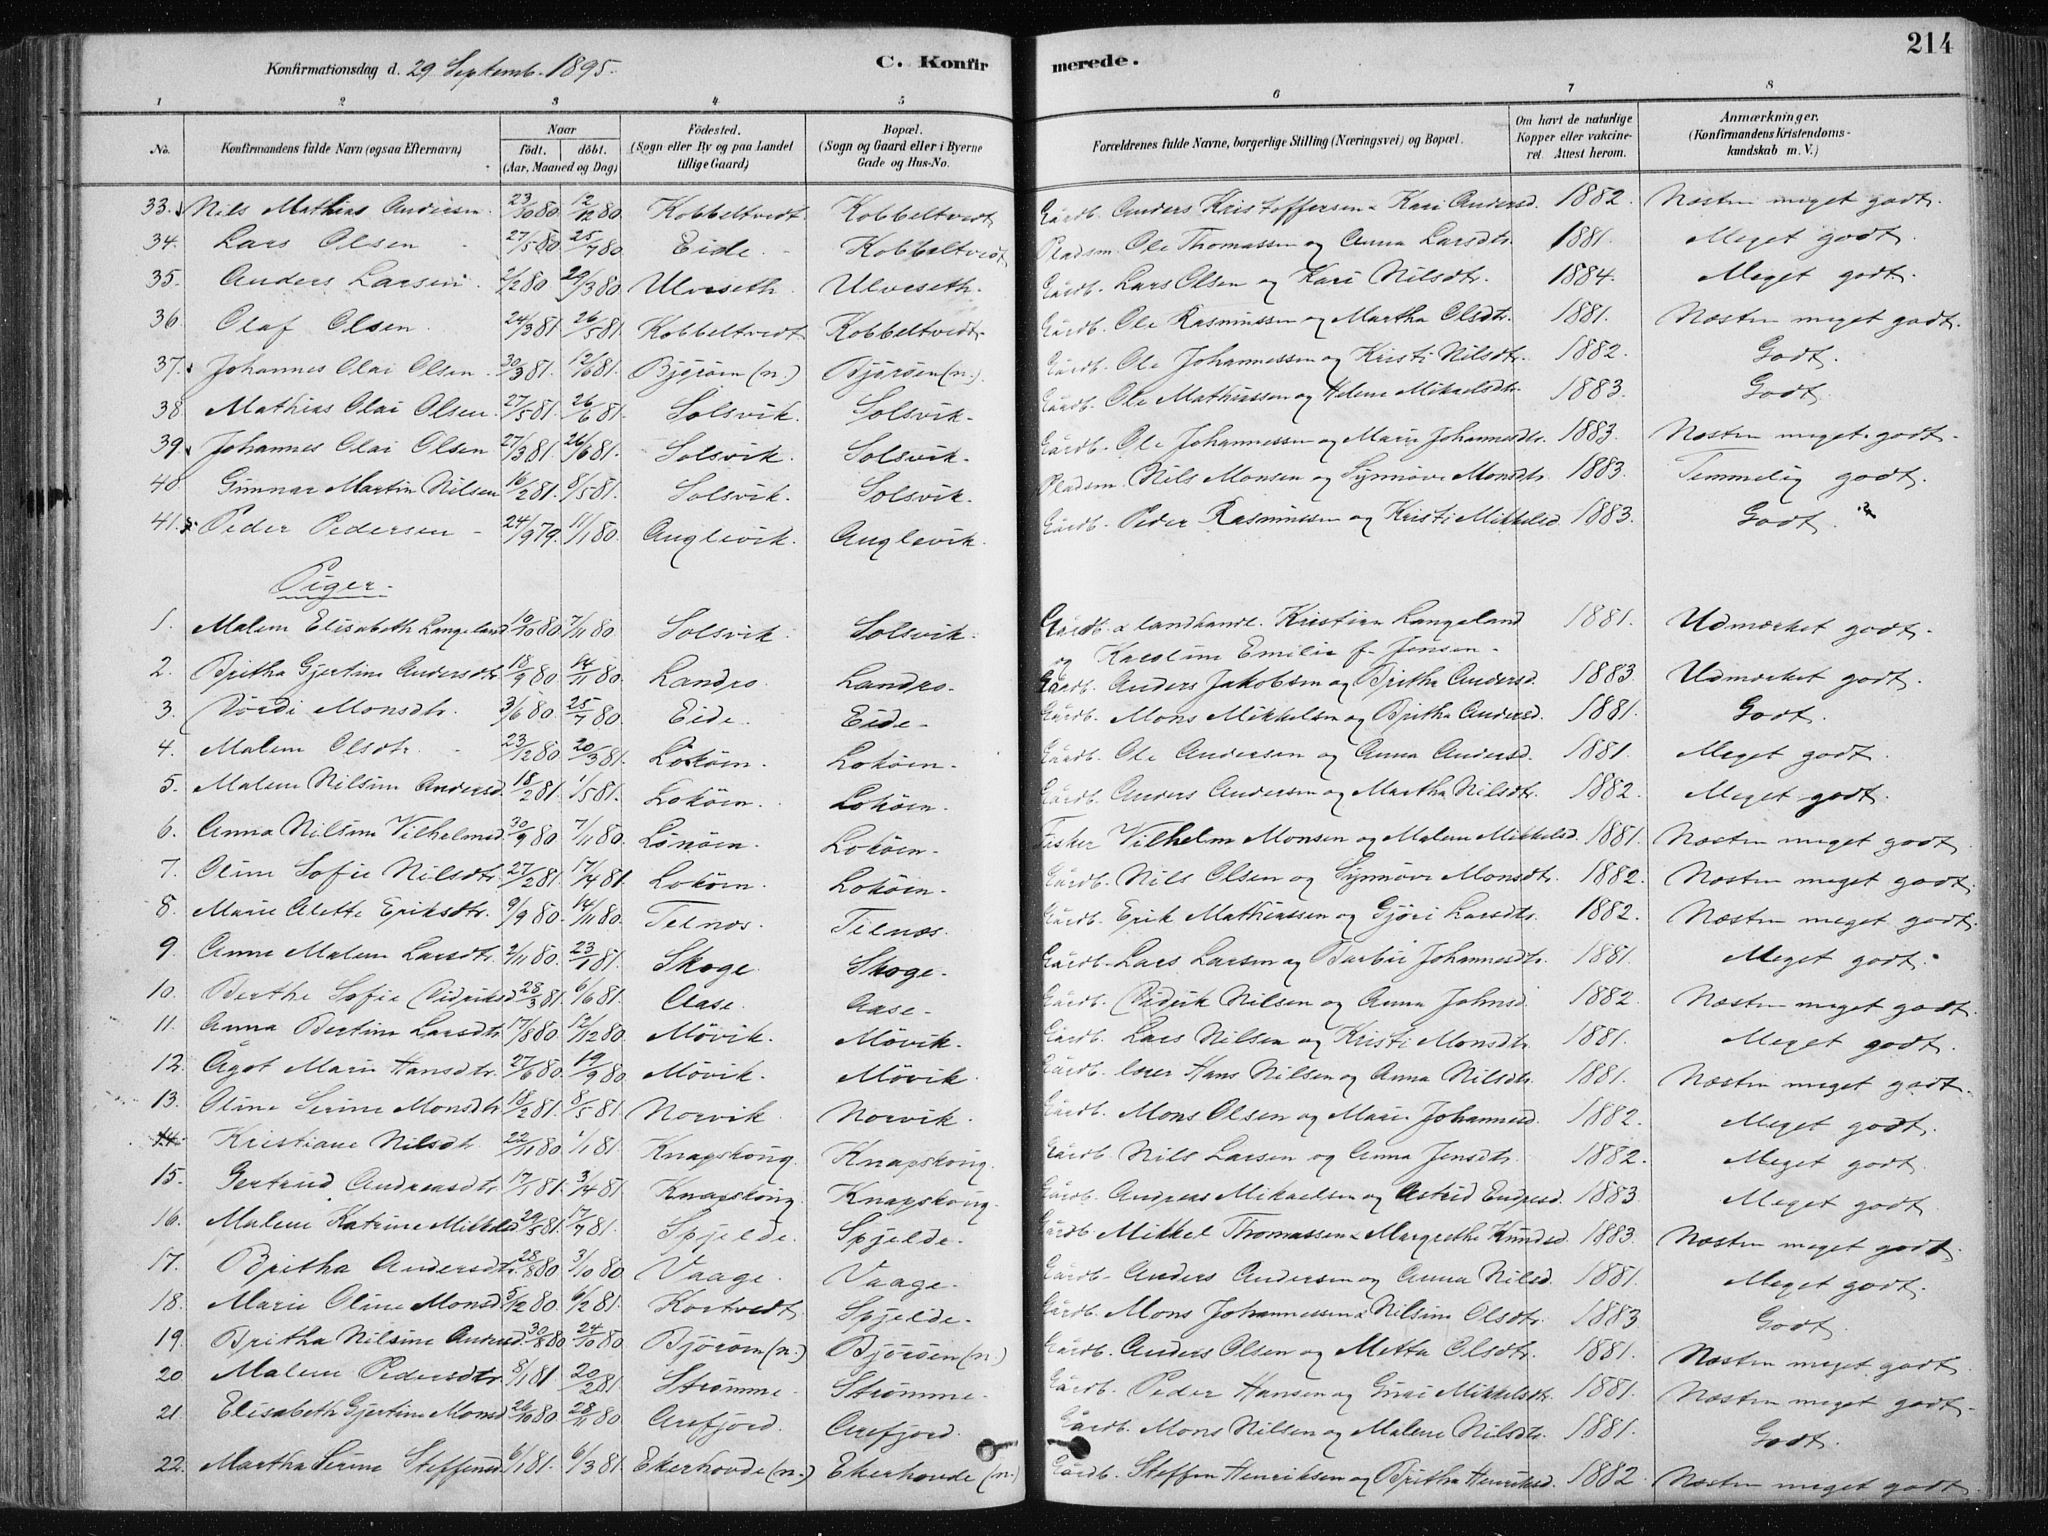 214
Konfirmationsdag d. 29 Septemb. 1895. C. Konfirmerede.
1 2 3 4 5 6 7 8
No. Konfirmandens fulde Navn (ogsaa Efternavn) Naar født. døbt. (Aar, Maaned og Dag) Fødested. (Sogn eller By og paa Landet tillige Gaard) Bopæl. (Sogn og Gaard eller i Byerne Gade og Hus-No. Forældrenes fulde Navne, borgerlige Stilling (Næringsvei) og Bopæl. Om havt de naturlige Kopper eller vakcineret. Attest herom. Anmærkninger. (Konfirmandens Kristendomskundskab m. V.)
33. Nils Mathias Andersen 23/10 80 12/12 80 Kobbeltvedt Kobbeltvedt Gårdb. Anders Kristoffersen & Kari Andersd. 1882. Næsten meget godt.
34. Lars Olsen 27/5 80 25/7 80 Eide Kobbeltvedt Pladsm. Ole Thomassen og Anna Larsdtr. 1881. Meget godt.
35. Anders Larsen 2/2 80 29/3 80 Ulveseth Ulveseth. Gårdb. Lars Olsen og Kari Nilsdtr. 1884. Meget godt.
36. Olaf Olsen 24/3 81 26/5 81 Kobbeltvedt Kobbeltvedt Gårdb. Ole Rasmussen og Martha Olsdtr. 1881. Næsten meget godt.
37. Johannes Olai Olsen 30/3 81 12/6 81. Bjørøen (n.) Bjørøen (n.) Gårdb. Ole Johannessen og Kristi Nilsdtr. 1882. Godt.
38. Mathias Olai Olsen 27/5 81. 26/6 81. Solsvik. Solsvik. Gårdb. Ole Mathiassen og Helene Mikaelsdtr. 1883. Godt.
39. Johannes Olai Olsen 27/3 81. 26/6 81. Solsvik. Solsvik. Gårdb. Ole Johannessen og Marie Johannesdtr. 1883. Næsten meget godt.
40. Gunnar Martin Nilsen 16/2 81. 8/5 81. Solsvik. Solsvik. Pladsm. Nils Monsen og Synnøve Monsdtr. 1883. Temmelig godt.
41. Peder Pedersen 24/9 79. 11/1 80. Anglevik. Anglevik. Gårdb. Peder Rasmussen og Kristi Mikkelsd. 1883. Godt.
Piger.
1. Malene Elisabeth Langeland 10/10 80 7/11 80 Solsvik. Solsvik. Gårdb. & landhandl. Kristian Langeland 1881. Udmærket godt.
og Karoline Emilie f. Jensen.
2. Britha Gjertine Andersdtr 18/9 80 14/11 80. Landro. Landro. Gårdb. Anders Jakobsen og Britha Andersd. 1883. Udmærket godt.
3. Dordi Monsdtr. 3/6 80 25/7 80. Eide. Eide. Gårdb. Mons Mikkelsen og Britha Andersd. 1881. Godt.
4. Malene Olsdtr. 23/12 80 20/3 81. Lokøen. Lokøen. Gårdb. Ole Andersen og Anna Andersd. 1881. Meget godt.
5. Malene Nilsine Andersd. 18/2 81. 1/5 81. Lokøen. Lokøen. Gårdb. Anders Andersen og Martha Nilsdtr. 1882. Meget godt.
6. Anna Nilsine Vilhelmsd. 30/9 80 7/11 80. Lønøen. Lokøen. Fisker Vilhelm Monsen og Malene Mikkelsd. 1881. Næsten meget godt.
7. Oline Sofie Nilsdtr. 27/2 81. 17/4 81. Lokøen. Lokøen. Gårdb. Nils Olsen og Synnøve Monsdtr. 1882. Næsten meget godt.
8. Marie Alette Eriksdtr. 9/9 80. 14/11 80. Telnes. Telnæs. Gårdb. Erik Mathiassen og Gjøri Larsdtr. 1882. Næsten meget godt.
9. Anne Malene Larsdtr. 2/11 80. 23/1 81. Skoge. Skoge. Gårdb. Lars Larsen og Barbro Johannesdtr. 1881. Meget godt.
10. Berthe Sofie Didriksd. 28/3 81. 6/6 81. Aase. Aase. Gårdb. Didrik Nilsen og Anna Johnsd. 1882. Næsten meget godt.
11. Anna Bertine Larsdtr. 17/8 80. 12/12 80. Møvik. Møvik. Gårdb. Lars Nilsen og Kristi Monsdtr. 1881. Meget godt.
12. Ågot Marie Hansdtr. 27/6 80. 19/9 80. Møvik. Møvik. Gårdb. lærer Hans Nilsen og Anna Nilsdtr. 1881. Næsten meget godt.
13. Oline Serine Monsdtr 18/2 81. 8/5 81. Norvik. Norvik. Gårdb. Mons Olsen og Mari Johannesd. 1882. Meget godt.
14. Kristiane Nilsdtr. 22/11 80. 1/1 81. Knapskøng. Knapskøng. Gårdb. Nils Larsen og Anna Jensdtr. 1882. Meget godt.
15. Gertrud Andreasdtr 17/1 81. 3/4 81. Knapskøng. Knapskøng. Gårdb. Andreas Mikaelsen og Astrid Endresd. 1883 Meget godt.
16. Malene Katrine Mikkelsd 29/5 81. 17/7 81. Spjelde. Spjelde. Gårdb. Mikkel Thomassen & Margrethe Knudsd. 1883. Næsten meget godt.
17. Britha Andersdtr. 28/8 80 3/10 80 Vaage. Vaage. Gårdb. Anders Andersen og Anna Nilsd. 1881. Meget godt.
18. Marie Oline Monsd. 5/12 80. 6/2 81. Kortvedt. Spjelde. Gårdb. Mons Johannessen & Nilsine Olsdtr. 1883 Godt.
19. Britha Nilsine Andersd. 30/8 80 24/10 80. Bjørøen (n.) Bjørøen (n.) Gårdb. Anders Olsen og Metta Olsdtr. 1881. Næsten meget godt.
20. Malene Pedersdtr. 8/1 81 20/2 81 Strømme. Strømme. Gårdb. Peder Hansen og Guri Mikkelsdtr. 1881. Næsten meget godt.
21. Elisabeth Gjertine Monsd. 26/10 80. 28/11 80. Arefjord. Arefjord. Gårdb. Mons Nilsen og Malene Nilsdtr. 1881. Godt.
22. Martha Serine Steffensd. 6/1 81. 6/3 81. Ekerhovde (n.) Ekerhovde (n.) Gårdb. Steffen Henriksen og Britha Henriksd. 1882 Næsten meget godt.